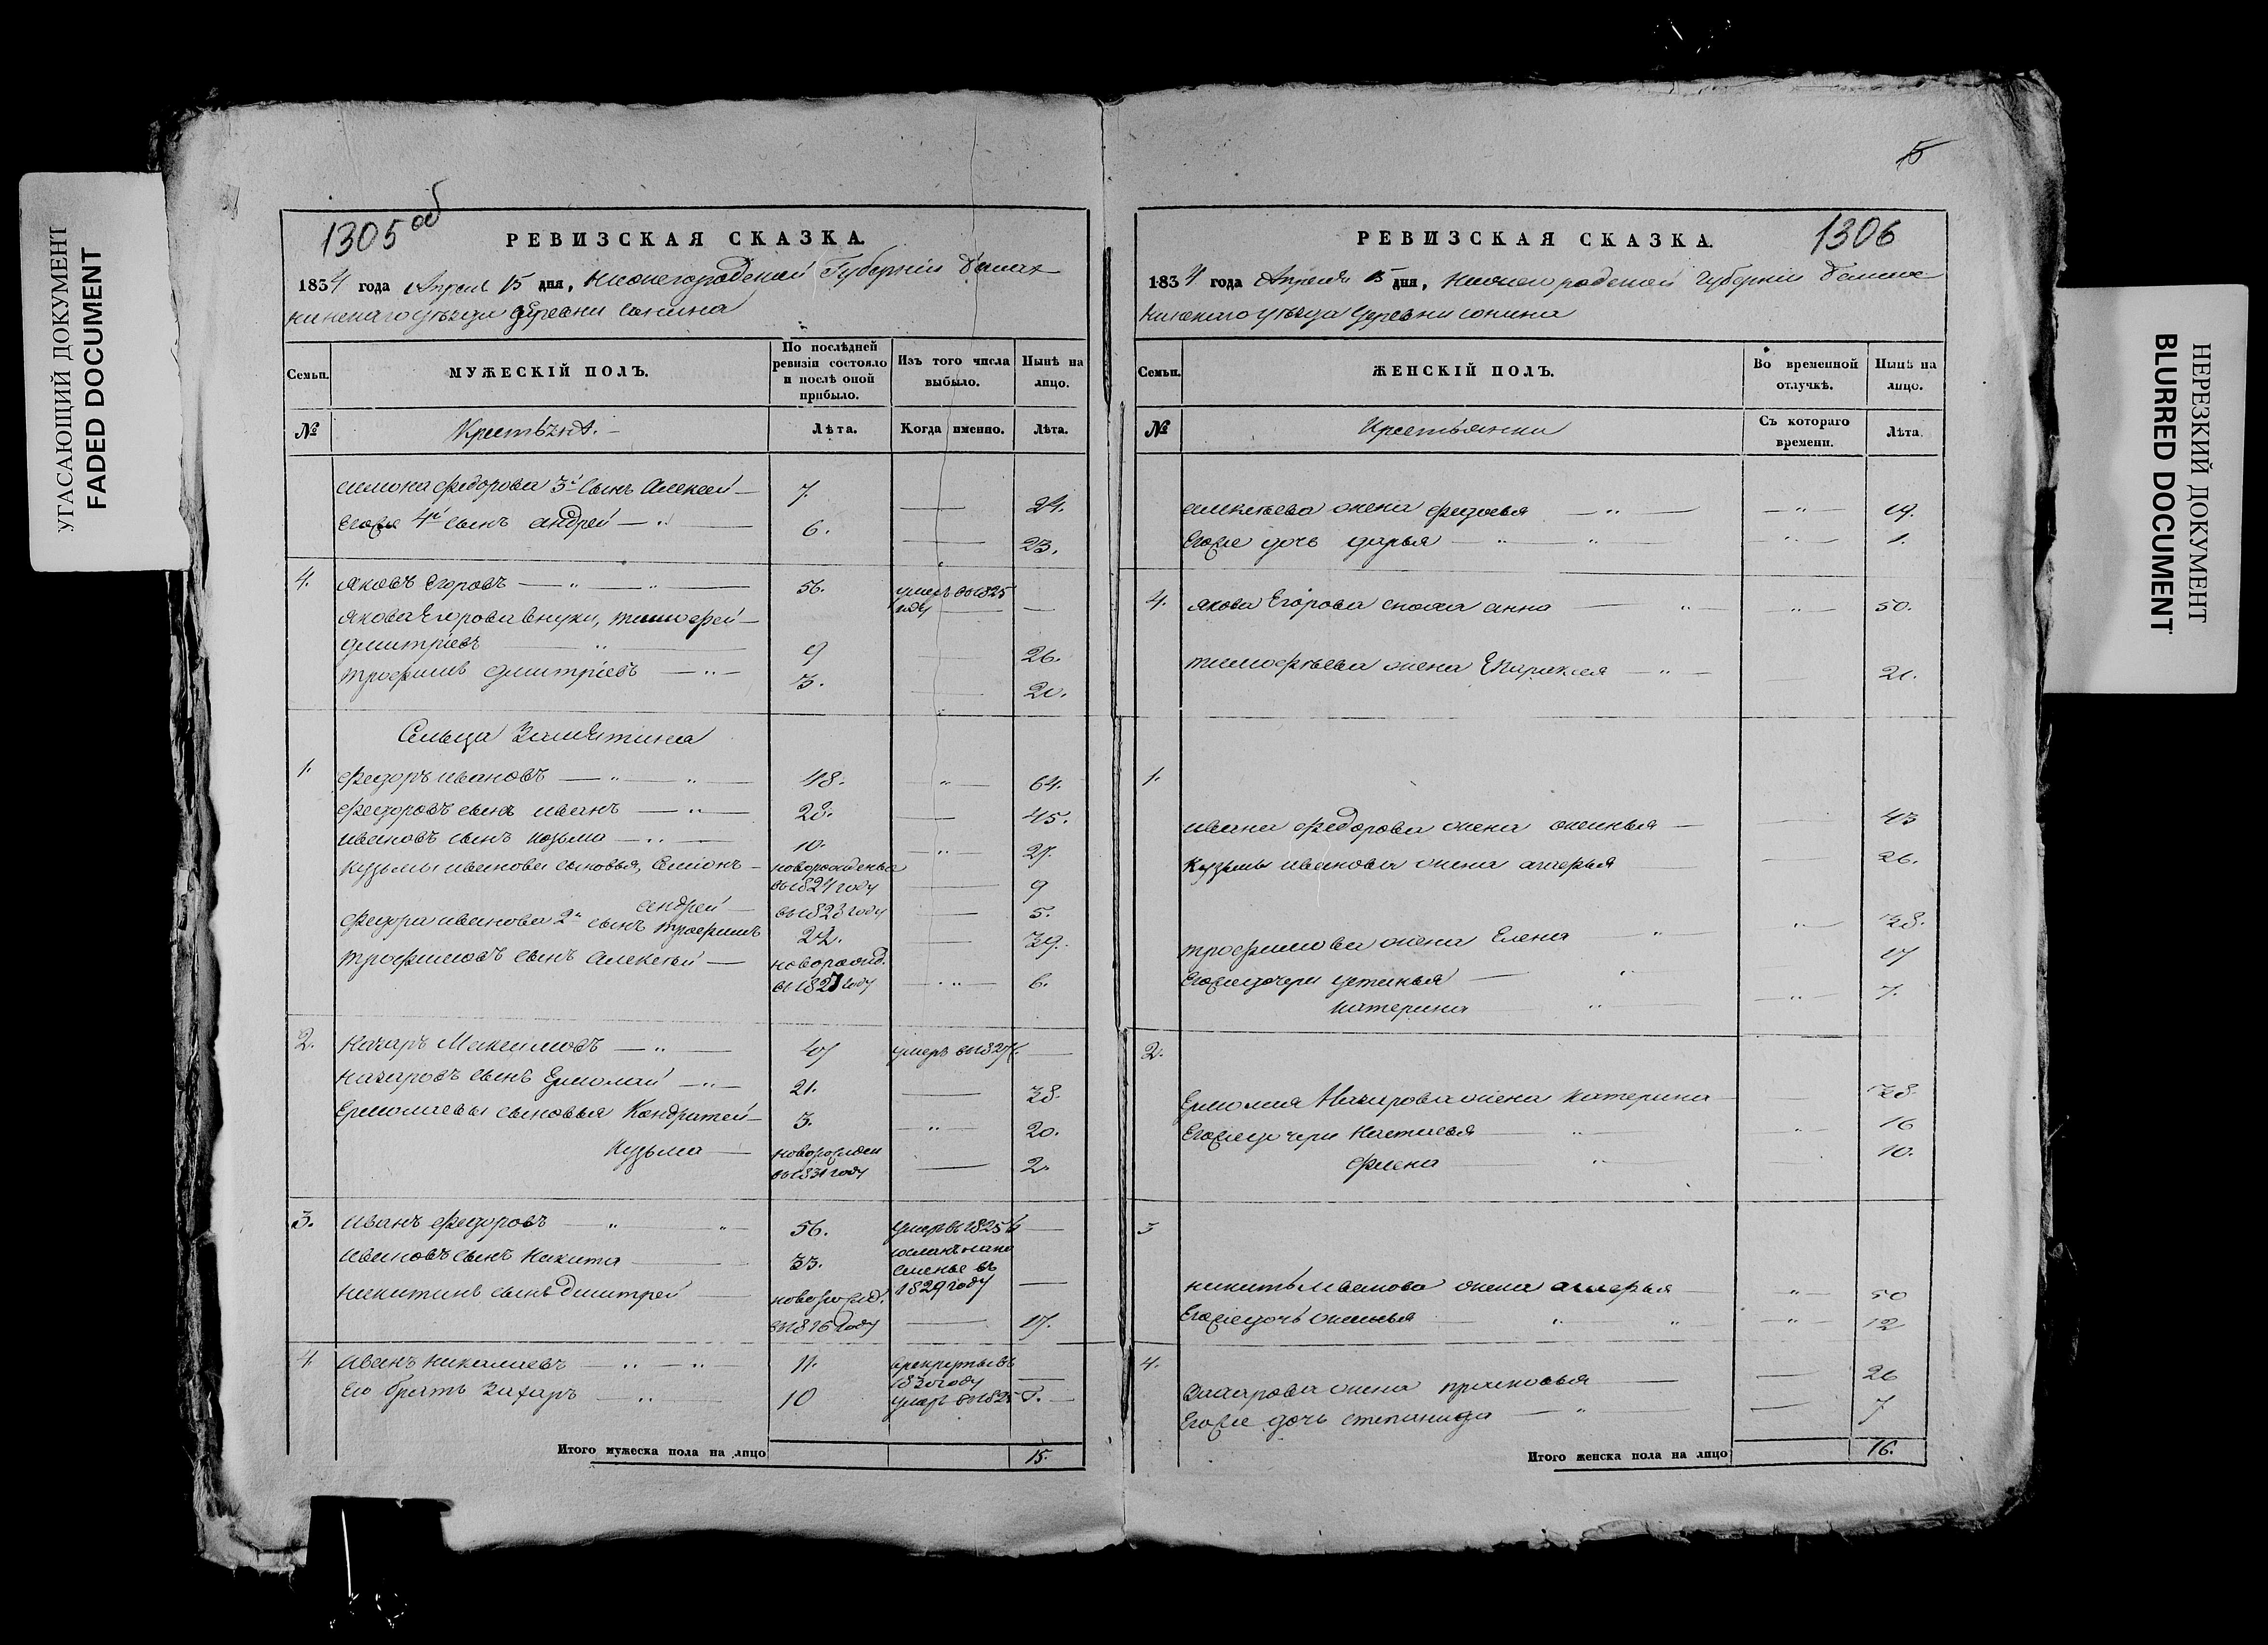 УГАСАЮЩИЙ ДОКУМЕНТ
FADED DOCUMENT
1305 об
РЕВИЗСКАЯ СКАЗКА.
1834 года Апреля 15 дня, Нижегородской Губернии
уезда деревни Сонина
Семьи.
МУЖЕСКІЙ ПОЛЪ.
По послѣдней ревизіи состояло и послѣ оной прибыло.
Изъ того числа выбыло.
Нынѣ на лицо.
№
Крестьянъ.
Лѣта.
Когда именно.
Лѣта.
Симона Федорова 3й сынъ Алексей 7. 24.
Егоже 4й сынъ андрей 6. 23.
4. Яковъ Егоровъ 56. умеръ въ 1825 году
Якова Егорова внуки, тимофей
дмитріевъ 9 26.
трофимъ дмитріевъ 3. 20.
Сельца Замятина
1. Федоръ ивановъ 48. 64.
Федоровъ сынъ иванъ 28. 45.
ивановъ сынъ козьма 10. 27.
Кузьмы иванова сыновья, Симонъ новорожденые въ 1824 году 9
андрей въ 1828 году 5.
Федора иванова 2й сынъ трофимъ 22. 39.
трофимовъ сынъ Алексей новорожд. въ 1827 году 6.
2. Назаръ Максимовъ 47 умеръ въ 1827
Назаровъ сынъ Ермолай 21. 38.
Ермолаевы сыновья Кондратей 3. 20.
Кузьма новорожден въ 1831 году 2.
3. Иванъ Федоровъ 56. умеръ въ 1825
ивановъ сынъ Никита 33. 1829 году
Никитинъ сынъ дмитрей новорожд. въ 1816 году 17.
4 Иванъ Николаевъ 11. 1830 году
Его братъ Захаръ 10 умеръ въ 1825 г.
Итого мужеска пола на лицо 15.
5
1306
РЕВИЗСКАЯ СКАЗКА.
1834 года Апреля 15 дня, Нижегородской Губернии
уезда деревни Сонина
Семьи.
ЖЕНСКІЙ ПОЛЪ.
Во временной отлучкѣ.
Нынѣ на лицо.
№
Крестьянки
Съ котораго времени.
Лѣта.
Алексеева жена федосья 19.
Егоже дочь дарья 1.
4. Якова Егорова сноха анна 50.
тимофеева жена 21.
1.
ивана Федорова жена аксинья 43
Кузьмы иванова жена 26.
трофимова жена Елена 38.
Егоже дочери устинья 17
катерина 7.
2.
Ермолая Назарова жена катерина 38.
Егоже дочери Настасья 16
10.
3
никиты иванова жена 50
Егоже дочь аксинья 12
4.
жена прасковья 26
Егоже дочь степанида 7
Итого женска пола на лицо 16.
НЕРЕЗКИЙ ДОКУМЕНТ
BLURRED DOCUMENT